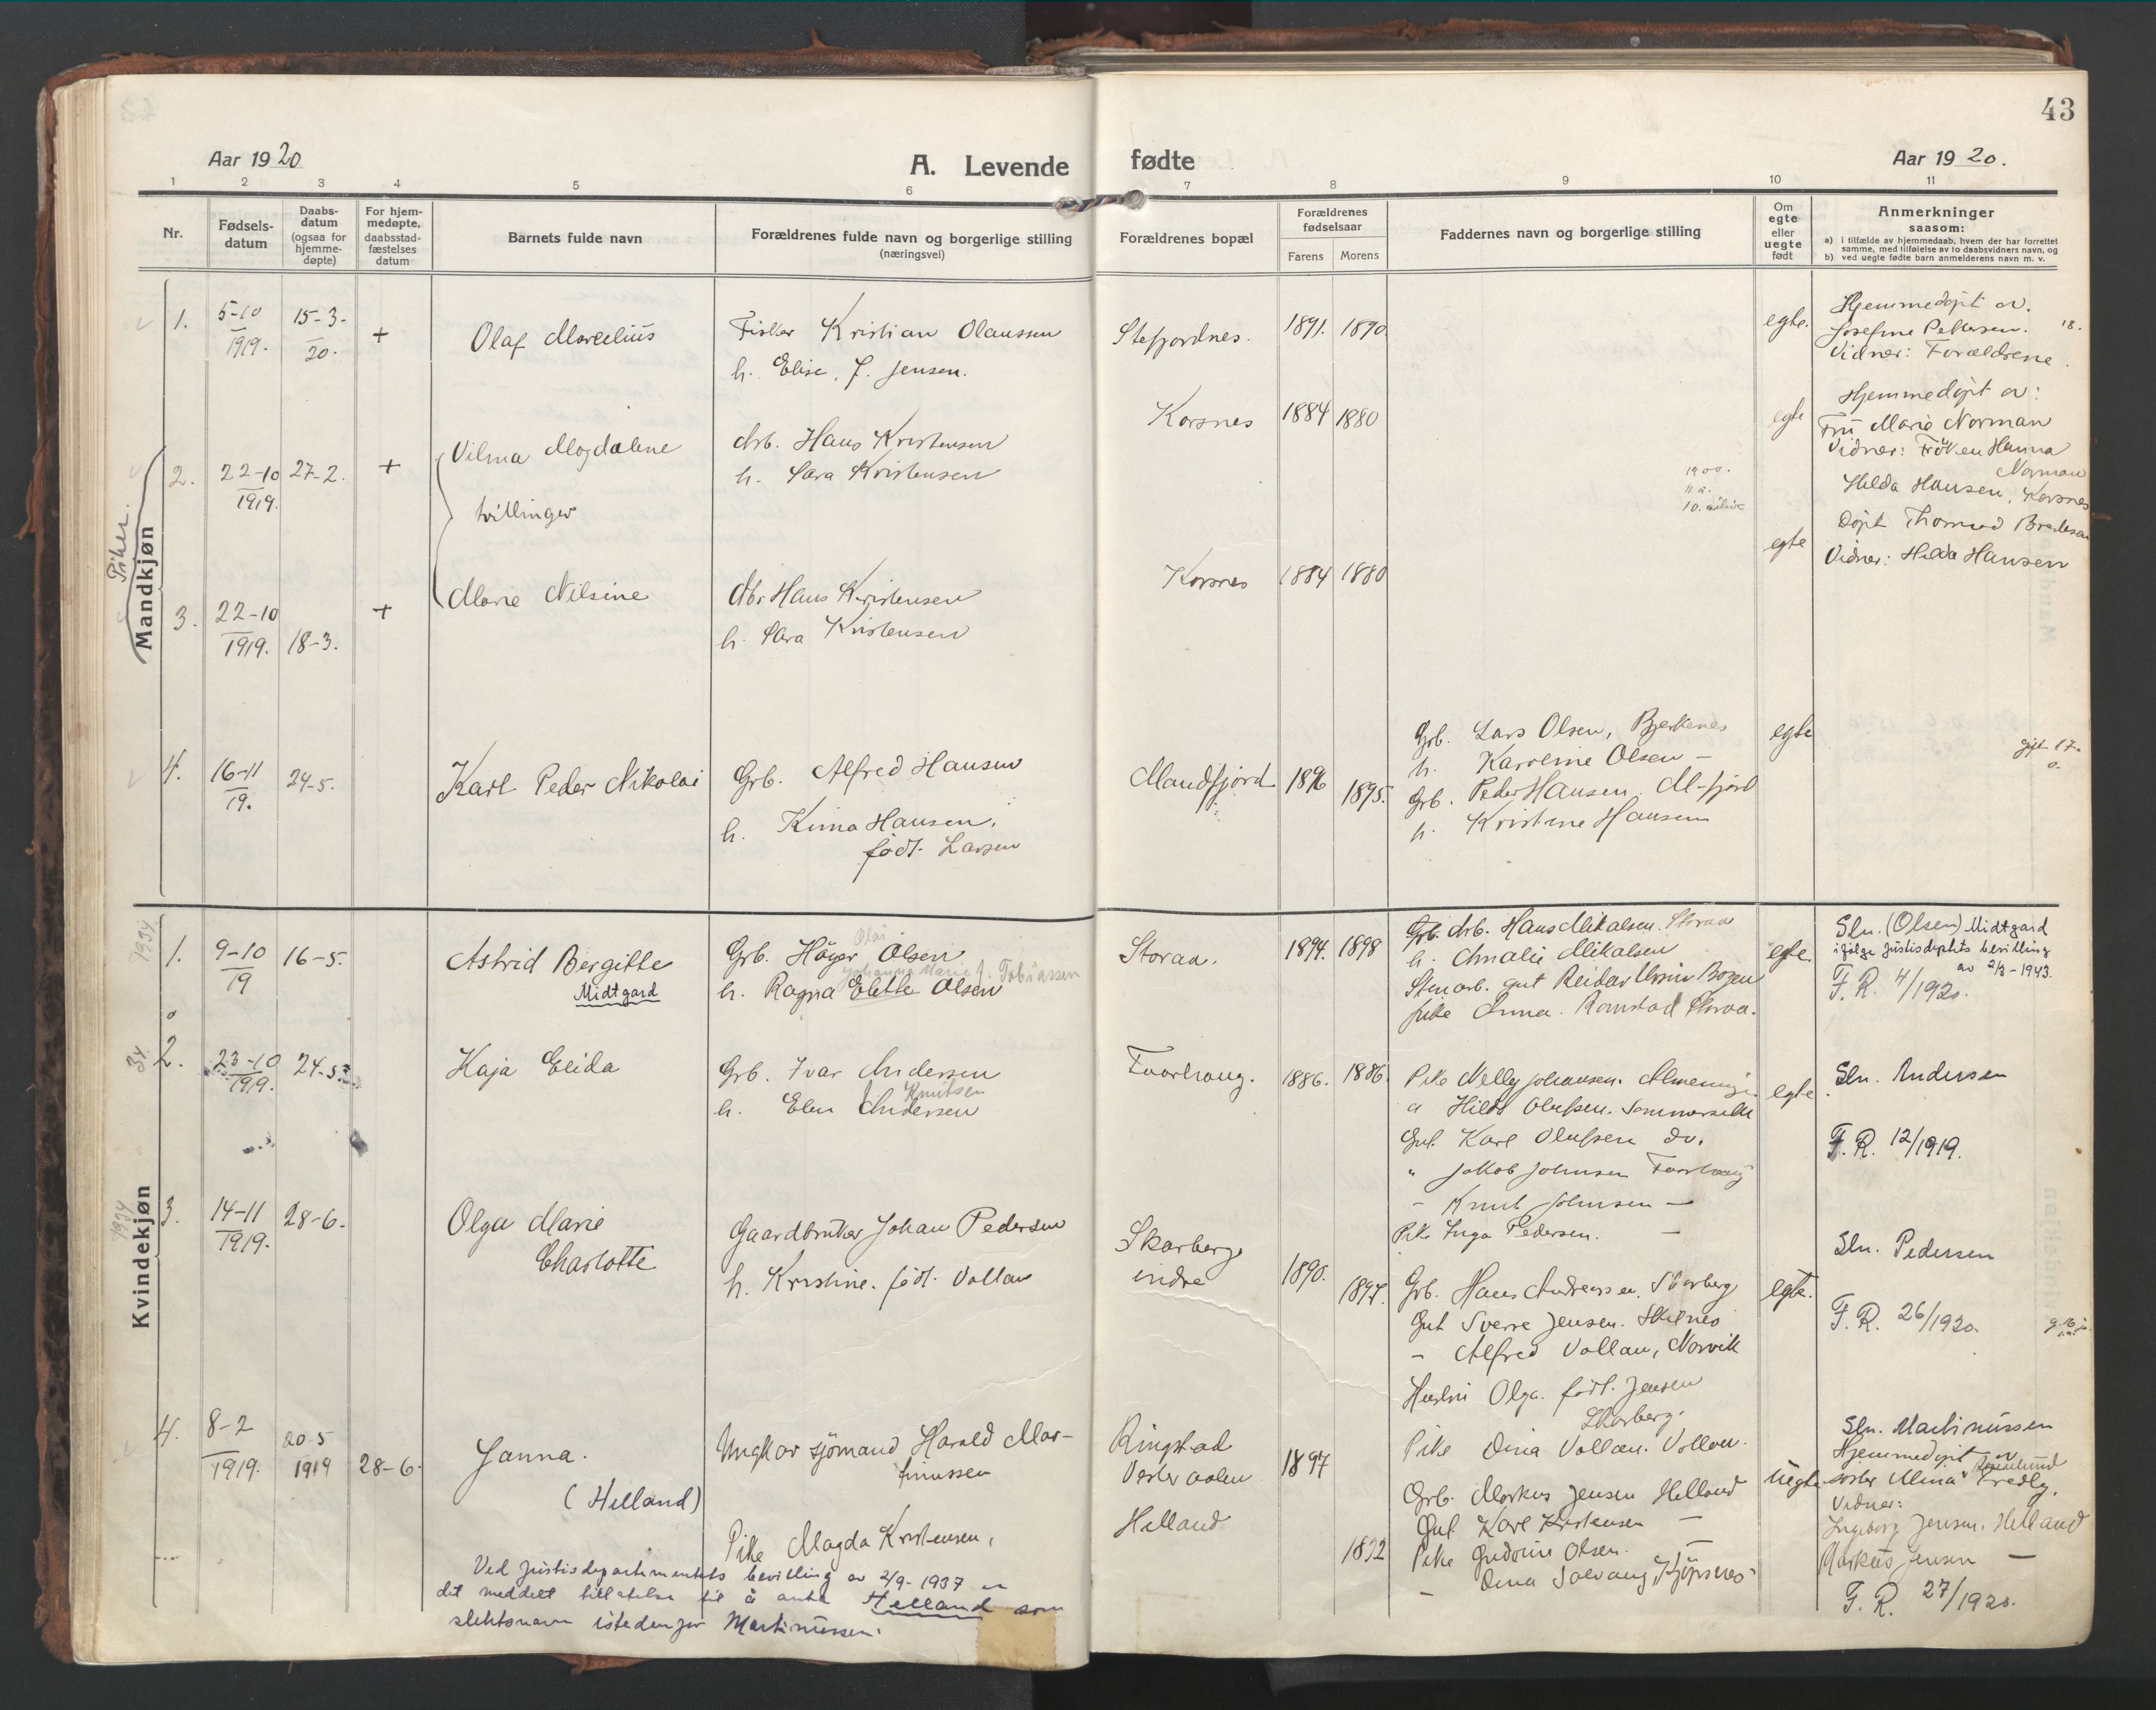 43
Aar 1920
A. Levende fødte
Aar 1920.
1 2 3 4 5 6 7 8 9 10 11
Nr.
Fødsels-
datum
Daabs-
datum
(ogsaa for
hjemme-
døpte)
For hjem-
medøpte,
daabsstad-
fæstelses
datum
Barnets fulde navn
Forældrenes fulde navn og borgerlige stilling
(næringsvei)
Forældrenes bopæl
Forældrenes
fødselsaar
Farens Morens
Faddernes navn og borgerlige stilling
Om
egte
eller
uegte
født
Anmerkninger
saasom:
a) i tilfælde av hjemmedaab, hvem der har forrettet
samme, med tilføielse av to daabsvidners navn, og
b) ved uegte fødte barn anmelderens navn m. v.
Mandkjøn
Piker.
1.
5-10
1919.
15-3-
20.
+
Olaf Marcelius
Fisker Kristian Olaussen
h. Elise, f. Jensen.
Stefjordnes.
1891. 1890
egte.
Hjemmedøpt av.
Josefine Pettersen. 18.
Vidner: Forældrene.
2.
22-10
1919.
27-2.
+
Vilma Magdalene
tvillinger
Arb. Hans Kristensen
h. Sara Kristensen
Korsnes
1884 1880
1900.
egte
Hjemmedøpt av:
Fru Marie Norman
Vidner: Frøken Hanna
Norman
Hilda Hansen, Korsnes
3.
22-10
1919.
18-3.
+
Marie Nilsine
Arb. Hans Kristensen
h. Sara Kristensen
Korsnes
1884 1880
egte
Døpt Thomas
Vidner: Hilda Hansen
4.
16-11
19.
24-5.
Karl Peder Nikolai
Grb. Alfred Hansen
h. Kima Hansen,
født Larsen
Mandfjord
1896 1895.
Grb. Lars Olsen, Bjerkenes
h. Karoline Olsen -
Grb. Peder Hansen. M-fjord
h. Kristine Hansen
egte
Kvindekjøn
1934
1.
9-10
19
16-5.
Astrid Bergitte
Midtgard
Olai
Grb. Höger Olsen
Johanna Marie f. Tobiassen
h. Ragna Elette Olsen
Storaa.
1894. 1898
Grb. Arb. Hans Mikalsen. Storaa
h. Amalie Mikalsen
Stenarb. gut Reidar Bogen
pike Anna. Ramstad Storaa.
egte.
Sln. (Olsen) Midtgard
ifølge Justisdeptets bevilling
av 2/3-1943.
F. R. 4/1920.
34
2.
23-10
1919.
24-5.
Kaja Elida
Grb. Ivar Andersen
Knutsen
h. Elen Andersen
1886. 1886.
Pike Nelly Johansen.
" Hilda Olufsen. Sommersæth
Gut. Karl Olufsen do.
" Jakob Johnsen
- Knut Johnsen -
Pike Inga Pedersen. -
egte
Sln. Andersen
F. R. 12/1919.
1934
3.
14-11
1919.
28-6.
Olga Marie
Charlotte
Gaardbruker Johan Pedersen
h. Kristine. født. Vollan
Skarberg
indre
1890. 1897.
Grb. Hans Andreassen, Skarberg
Gut Sverre Jensen.
- Alfred Vollan, Narvik
Hustru Olga. født. Jensen
Skarberg.
Pike Dina Vollan. Vollan.
egte.
Sln. Pedersen
F. R. 26/1920.
4.
8-2
1919.
20-5
1919
28-6.
Janna.
(Helland)
Ungkar sjömand Harald Mar-
tinussen
Pike Magda Kristensen,
Ringstad
Vesteraalen
Helland
1897
1892
Grb. Markus Jensen Helland
Gut. Karl Kristensen -
Pike Gudrun Olsen. -
- Dina Solvang, Kjøpsnes
uegte
Sln. Martinussen
Hjemmedøpt av
søster Alma Rosenlund Fredly.
Vidner:
Ingeborg Jensen. Helland
Markus Jensen -
F. R. 27/1920.
Ved Justisdepartementets bevilling av 2/9-1937 er
det meddelt tillatelse til å anta Helland som
slektsnavn istedenfor Martinussen.